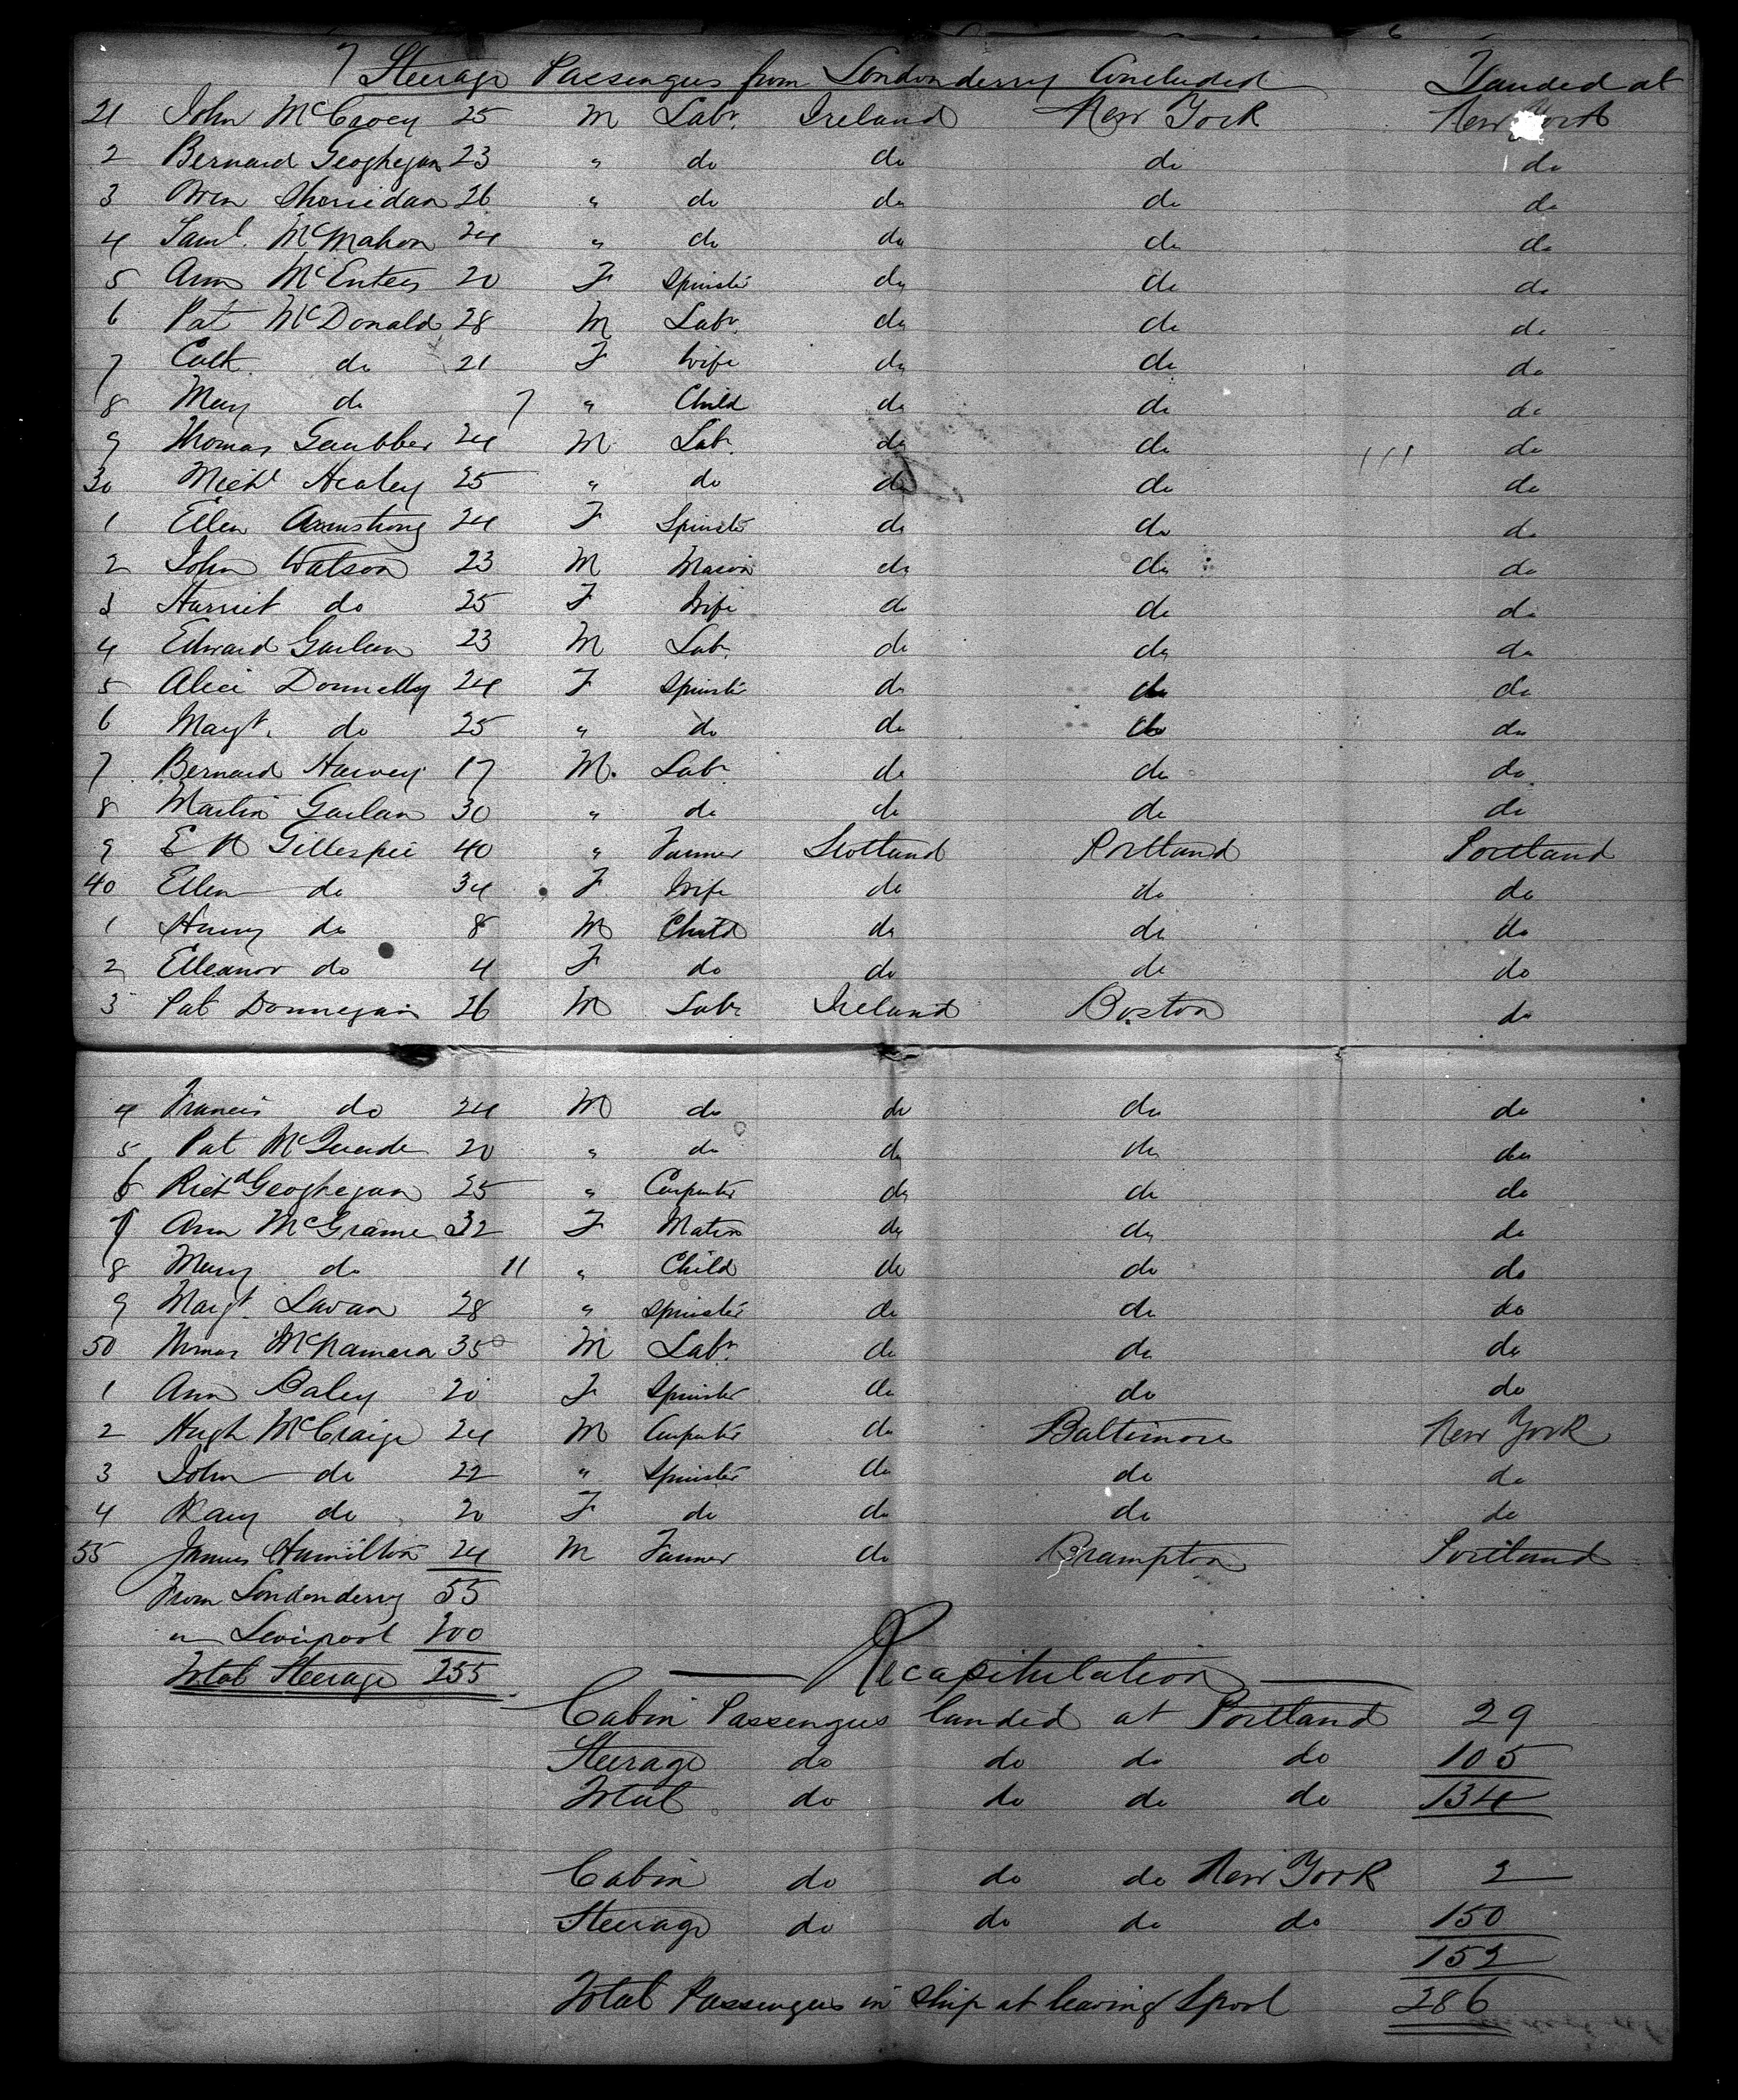 7 Steerage Passengers from Londonderry Concluded Landed at
21 John McCrocy 25 M Labr. Ireland New York New York
2 Bernard Geoghegan 23 " do do do do
3 Owen Sheridan 26 " do do do do
4 Saml. McMahon 24 " do do do do
5 Ann McEntee 20 F Spinster do do do
6 Pat McDonald 28 M Labr. do do do
7 Cath do 21 F Wife do do do
8 Mary do 7 " Child do do do
9 Thomas 24 M Labr. do do do
30 Michl Healey 25 " do do do do
1 Ellen Armstrong 24 F Spinster do do do
2 John Watson 23 M Mason do do do
3 Harriet do 25 F Wife do do do
4 Edward Garlan 23 M Labr. do do do
5 Alice Donnelly 24 F Spinster do do do
6 Margt. do 25 " do do do do
7 Bernard Harvey 17 M. Labr do do do
8 Martin Garlan 30 " do do do do
9 E Gillespie 40 " Farmer Scotland Portland Portland
40 Ellen do 34 F Wife do do do
1 Henry do 8 M Child do do do
2 Elleanor do 4 F do do do do
3 Pat Donnegan 26 M Labr Ireland Boston do
4 Francis do 24 M do do do do
5 Pat McQuade 20 " do do do do
6 Richd Geoghegan 25 " Carpenter do do do
7 Ann McGrame 32 F Matron do do do
8 Mary do 11 " Child do do do
9 Margt. Lavan 28 " Spinster do do do
50 Thomas McNamara 35 M Labr. do do do
1 Ann Baley 20 F Spinster do do do
2 Hugh McCraige 24 M Carpenter do Baltimore New York
3 John do 22 " Spinster do do do
4 Mary do 20 F do do do do
55 James Hamilton 24 M Farmer do Brampton Portland
From Londonderry 55
" Liverpool 200
Total Steerage 255
Recapitulation
Cabin Passengers landed at Portland 29
Steerage do do do do 105
Total do do do do 134
Cabin do do do New York 2
Steerage do do do do 150
152
Total Passengers in Ship at leaving Lpool 286